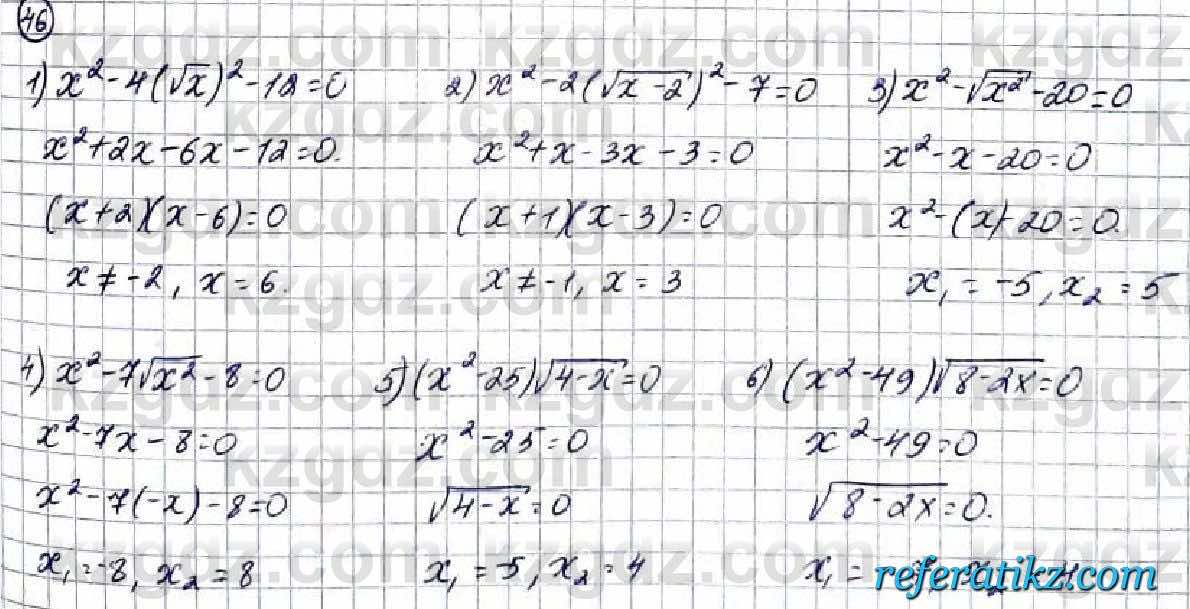 46
1) x² - 4(√x)² - 12 = 0
x² + 2x - 6x - 12 = 0.
(x + 2)(x - 6) = 0
x ≠ -2, x = 6.
2) x² - 2(√x - 2)² - 7 = 0
x² + x - 3x - 3 = 0
(x + 1)(x - 3) = 0
x ≠ -1, x = 3
3) x² - √x² - 20 = 0
x² - x - 20 = 0
x² - (x) - 20 = 0.
x₁ = -5, x₂ = 5
4) x² - 7√x² - 8 = 0
x² - 7x - 8 = 0
x² - 7(-x) - 8 = 0
x₁ = -8, x₂ = 8
5) (x² - 25)√4 - x = 0
x² - 25 = 0
√4 - x = 0
x₁ = -5, x₂ = 4
6) (x² - 49)√8 - 2x = 0
x² - 49 = 0
√8 - 2x = 0.
x₁ =
referatikz.com
kzgdz.com